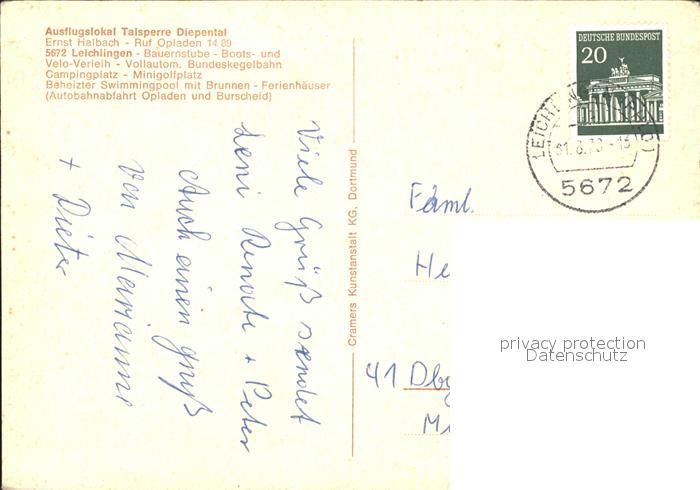 Ausflugslokal Talsperre Diepental
Ernst Halbach - Ruf Opladen 14 89
5672 Leichlingen - Bauernstube - Boots- und
Velo-Verleih - Vollautom. Bundeskegelbahn
Campingplatz - Minigolfplatz
Beheizter Swimmingpool mit Brunnen - Ferienhäuser
(Autobahnabfahrt Opladen und Burscheid)
Viele Grüß sendet
Leni Renate + Peter
Auch einen gruß
von Marianne
+ Dieter
Cramers Kunstanstalt KG, Dortmund
DEUTSCHE BUNDESPOST
20
LEICHL
31.8.70-13
5672
Faml.
He
41 Dbg
privacy protection
Datenschutz